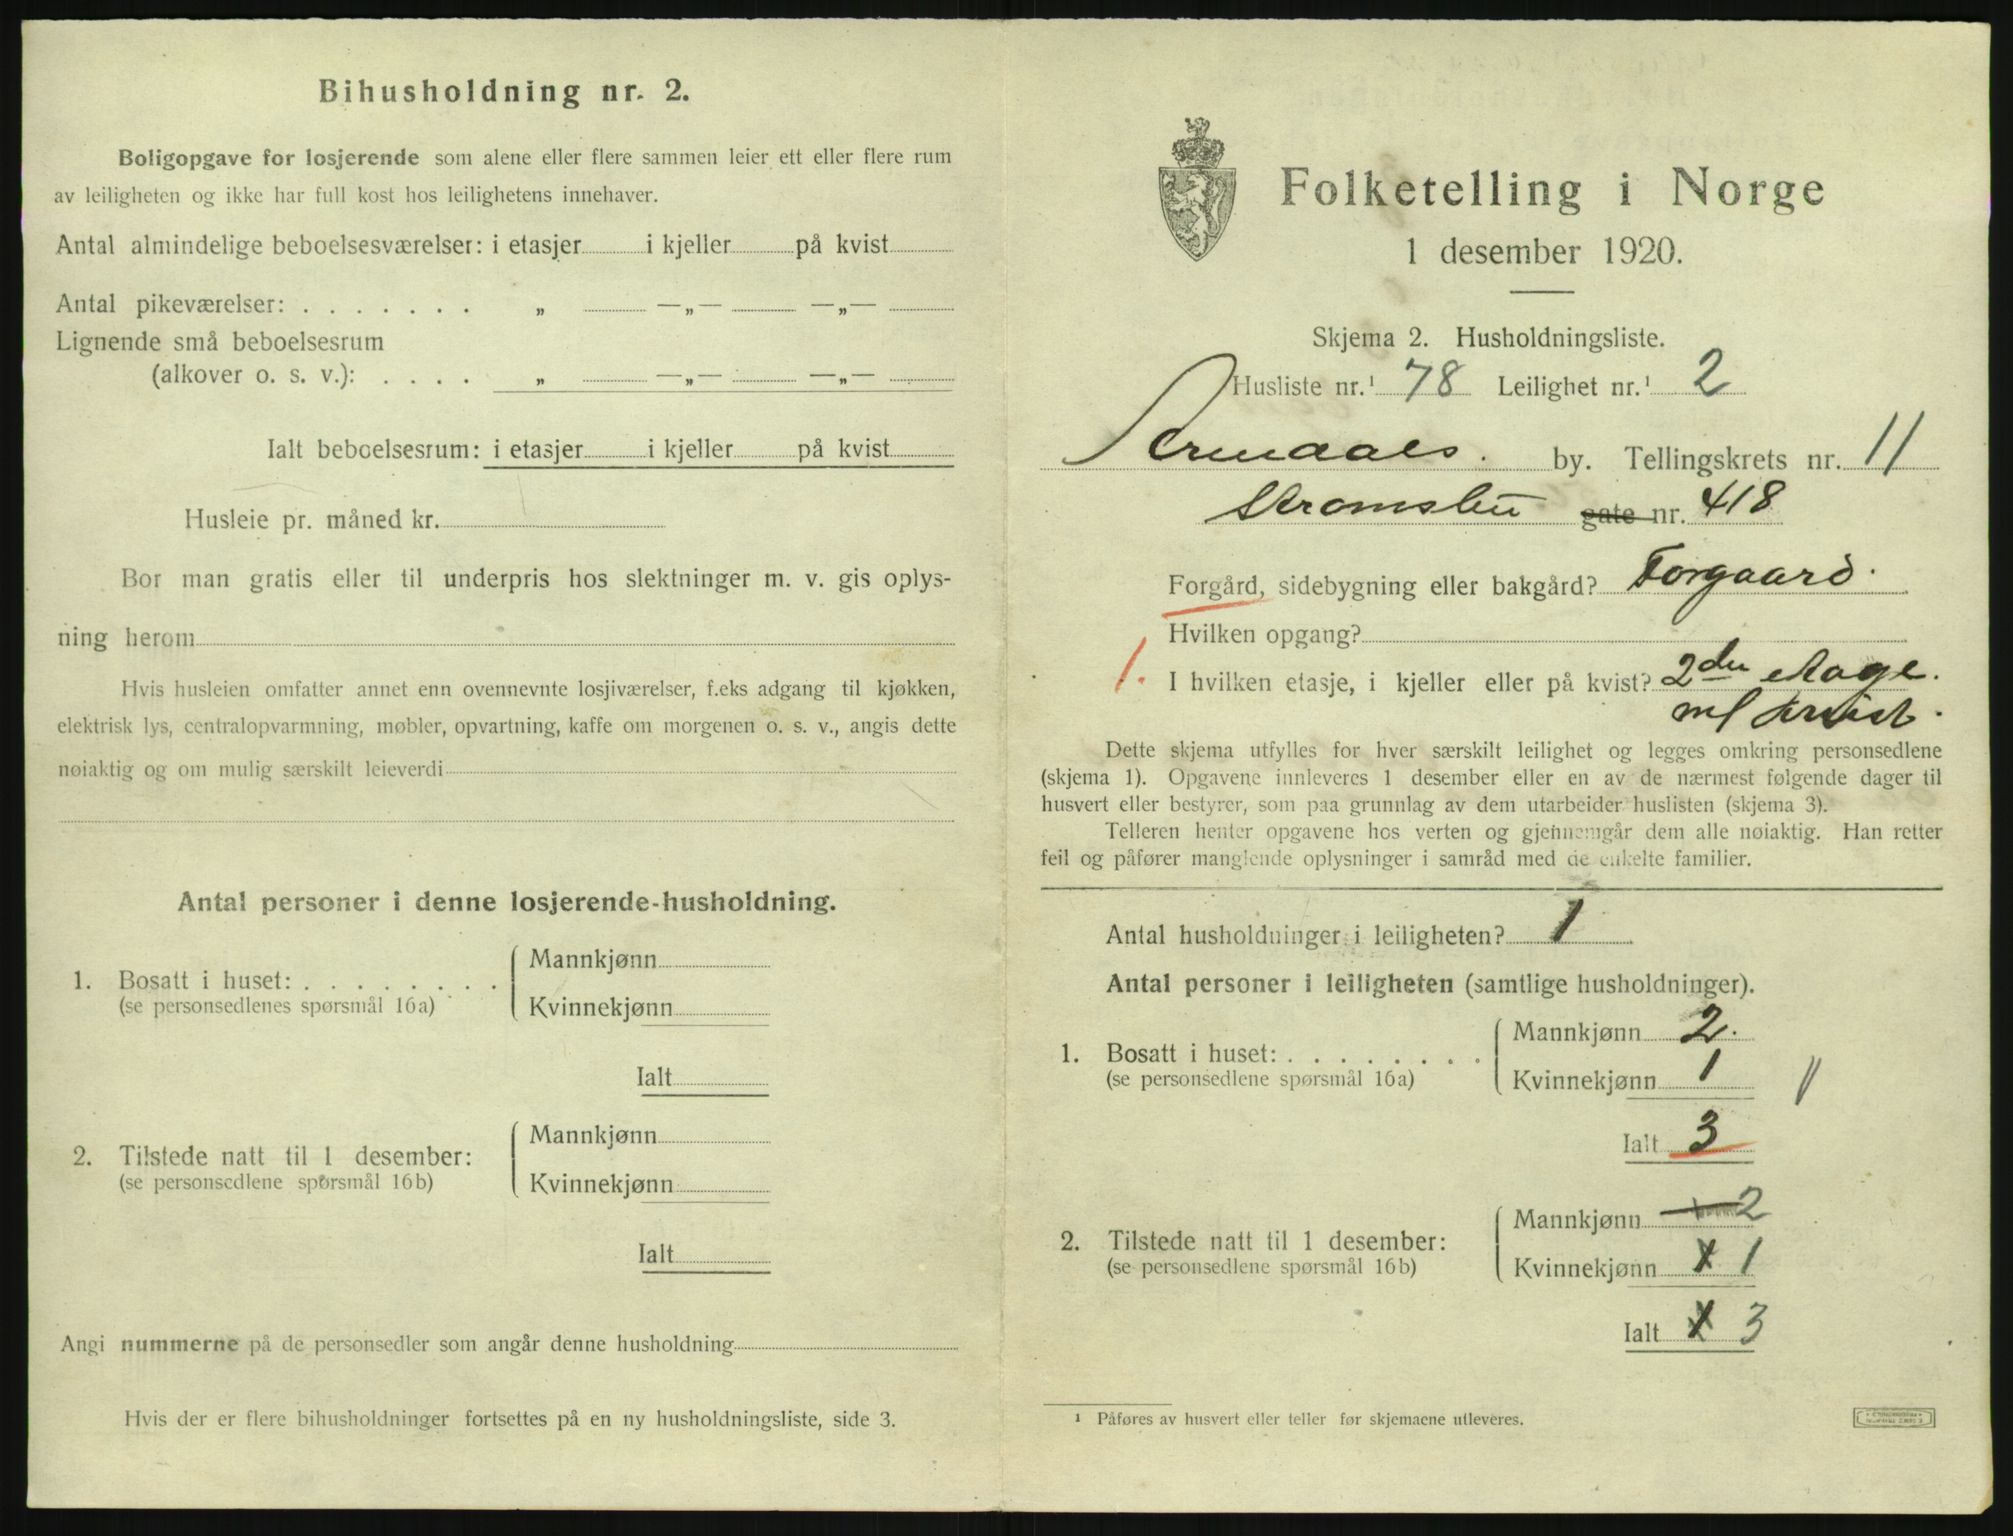 Bihusholdning nr. 2.
Boligopgave for losjerende som alene eller flere sammen leier ett eller flere rum
av leiligheten og ikke har full kost hos leilighetens innehaver.
Antal almindelige beboelsesværelser: i etasjer i kjeller på kvist
Antal pikeværelser: . . . . . . . „ —„— —„—
Lignende små beboelsesrum
(alkover o. s. v.): . . . . „ —„— —„—
Ialt beboelsesrum: i etasjer i kjeller på kvist
Husleie pr. måned kr.
Bor man gratis eller til underpris hos slektninger m. v. gis oplys-
ning herom
Hvis husleien omfatter annet enn ovennevnte losjiværelser, f.eks adgang til kjøkken,
elektrisk lys, centralopvarmning, møbler, opvartning, kaffe om morgenen o. s. v., angis dette
nøiaktig og om mulig særskilt leieverdi
Antal personer i denne losjerende-husholdning.
1. Bosatt i huset: . . . . . . . .
(se personsedlenes spørsmål 16a)
Mannkjønn
Kvinnekjønn
Ialt
2. Tilstede natt til 1 desember:
(se personsedlene spørsmål 16b)
Mannkjønn
Kvinnekjønn
Ialt
Angi nummerne på de personsedler som angår denne husholdning
Hvis der er flere bihusholdninger fortsettes på en ny husholdningsliste, side 3.
Folketelling i Norge
1 desember 1920.
Skjema 2. Husholdningsliste.
Husliste nr.¹ 78 Leilighet nr.¹ 2
Arendals. by. Tellingskrets nr. 11
Strømsbu gate nr. 418
Forgård, sidebygning eller bakgård? Forgaard.
Hvilken opgang?
1. I hvilken etasje, i kjeller eller på kvist? 2den etage.
m/ kvist.
Dette skjema utfylles for hver særskilt leilighet og legges omkring personsedlene
(skjema 1). Opgavene innleveres 1 desember eller en av de nærmest følgende dager til
husvert eller bestyrer, som paa grunnlag av dem utarbeider huslisten (skjema 3).
Telleren henter opgavene hos verten og gjennemgår dem alle nøiaktig. Han retter
feil og påfører manglende oplysninger i samråd med de enkelte familier.
Antal husholdninger i leiligheten? 1
Antal personer i leiligheten (samtlige husholdninger).
1. Bosatt i huset: . . . . . . . .
(se personsedlene spørsmål 16a)
Mannkjønn 2.
Kvinnekjønn 1
Ialt 3
2. Tilstede natt til 1 desember:
(se personsedlene spørsmål 16b)
Mannkjønn 2
Kvinnekjønn 1
Ialt 3
¹ Påføres av husvert eller teller før skjemaene utleveres.